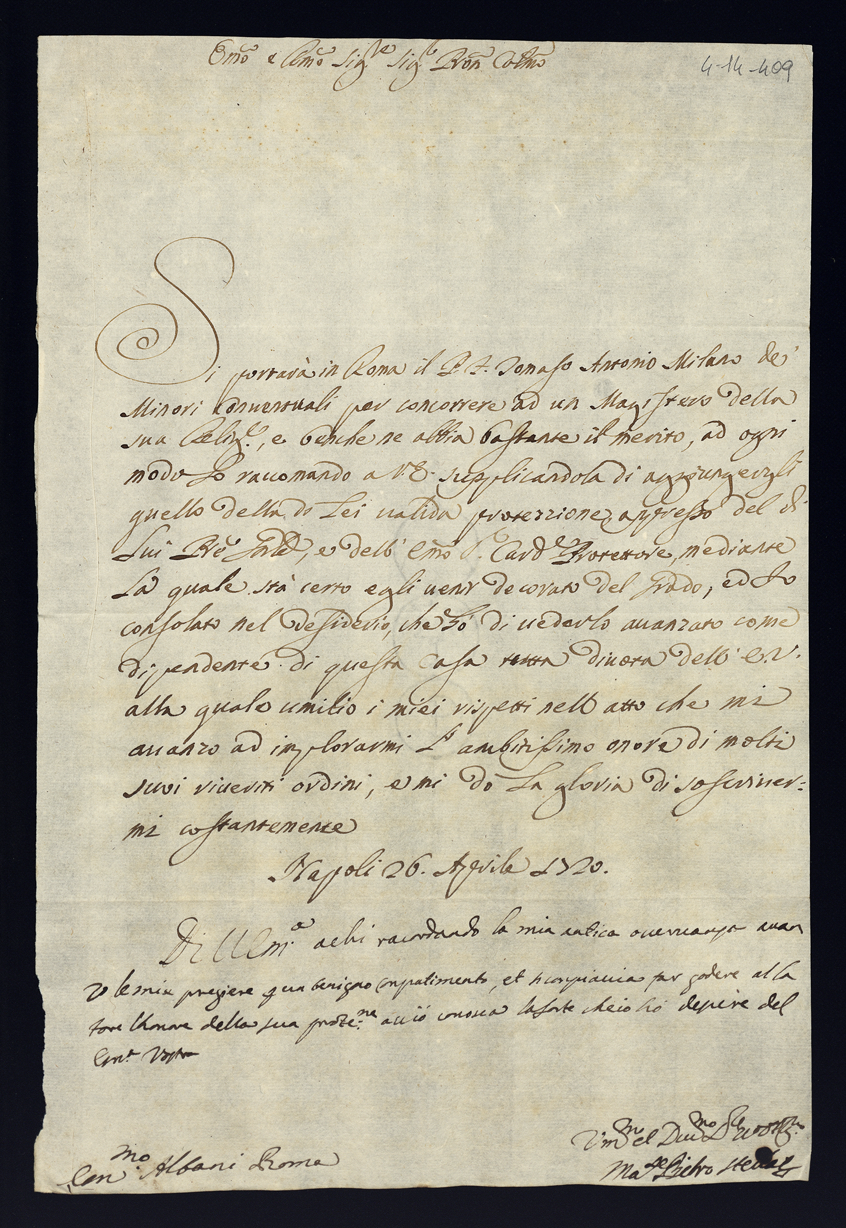 Emõ e Rmõ Sig.re Sig.r Pron Colmõ
4-14-409
Si portarà in Roma il P. F. Tomaso Antonio Milano de'
Minori Conventuali per concorrere ad un Magistero della
sua Relig.e, e benche ne abbia bastante il merito, ad ogni
modo Lo raccomando a V.E. supplicandola di aggiungergli
quello della di Lei valida protezzione, appresso del di
Lui Pre Gnle, e dell' Emo S.r Card.e Protettore, mediante
La quale stà certo egli venir decorato del Grado, ed Io
consolato nel desiderio, che hò di vederlo avanzato come
dipendente di questa Casa tutta divota dell' E.V.
alla quale umilio i miei rispetti nell' atto che mi
avanzo ad implorarmi L' ambitissimo onore di molti
suoi riveriti ordini, e mi dò La gloria di soscriver-
mi costantemente
Napoli 26. Aprile 1720.
Di V Em.a a chi racordando la mia antica overvanza
le mie pregiere benigno conpatimento, et per godere
lhonore della sua prote.ne acciò conosca la sorte che io hò del
Em.a Vostra
Em.mo Albani Roma
Um.mo et Div.mo
Pietro